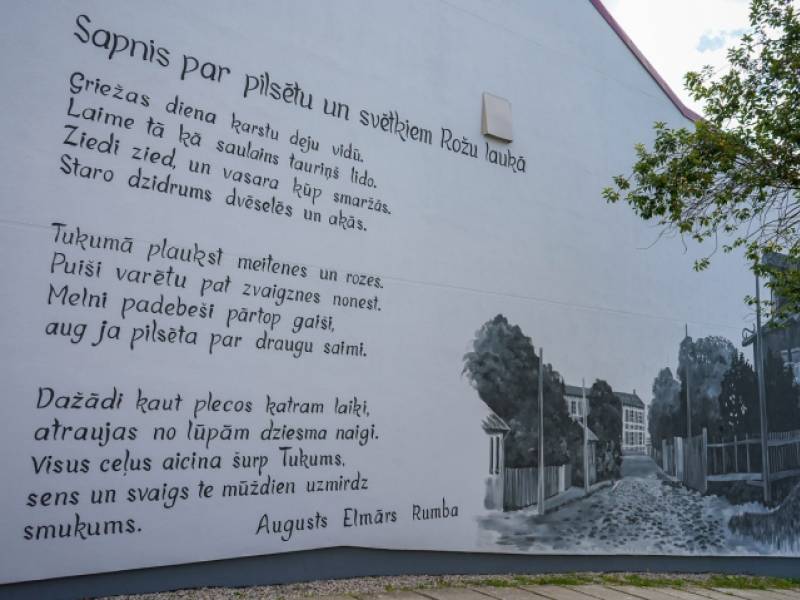 Sapnis par pilsētu un svētkiem Rožu laukā
Griežas diena karstu deju vidū.
Laime tā kā saulains tauriņš lido.
Ziedi zied, un vasara kūp smaržās.
Staro dzidrums dvēselēs un akās.
Tukumā plaukst meitenes un rozes.
Puiši varētu pat zvaigznes nonest.
Melni padebeši pārtop gaiši,
aug ja pilsēta par draugu saimi.
Dažādi kaut plecos katram laiki,
atraujas no lūpām dziesma naigi.
Visus ceļus aicina šurp Tukums,
sens un svaigs te mūždien uzmirdz
smukums.
Augusts Elmārs Rumba